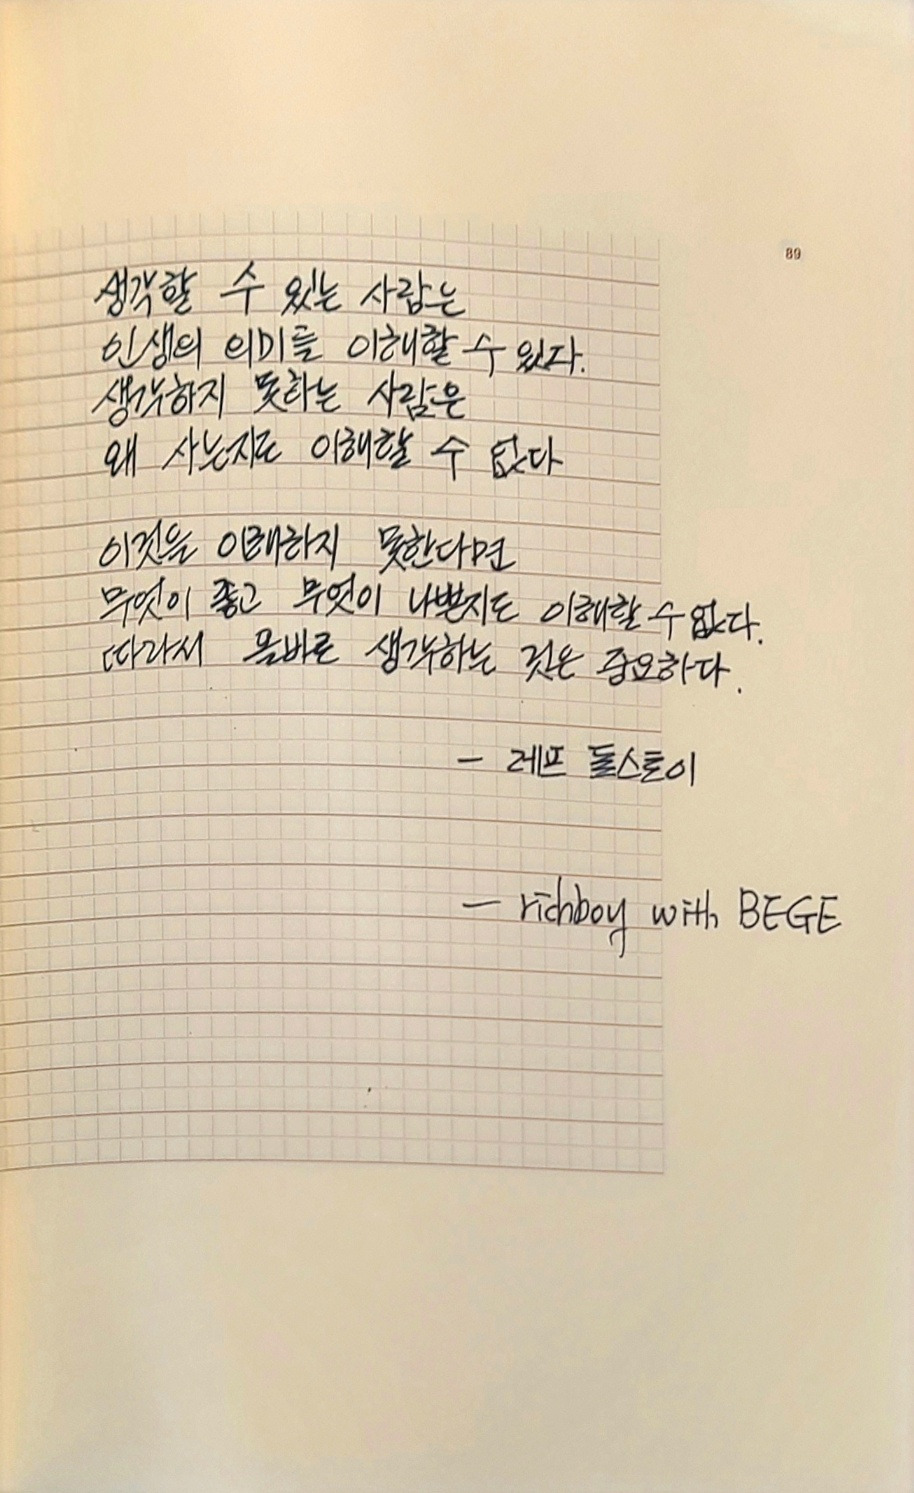 89
생각할 수 있는 사람은
인생의 의미를 이해할 수 있다.
생각하지 못하는 사람은
왜 사는지도 이해할 수 없다
이것을 이해하지 못한다면
무엇이 좋고 무엇이 나쁜지도 이해할 수 없다.
따라서 올바로 생각하는 것은 중요하다.
- 레프 톨스토이
- richboy with BEGE